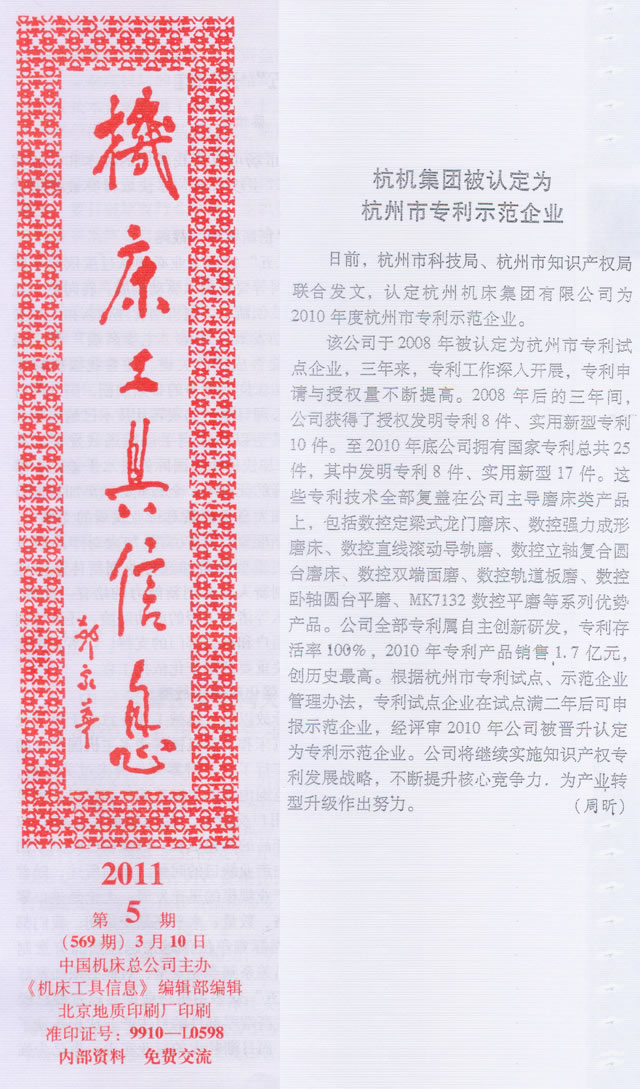 機床工具信息
2011
第 5 期
(569期) 3月10日
中国机床总公司主办
《机床工具信息》编辑部编辑
北京地质印刷厂印刷
准印证号：9910—L0598
内部资料 免费交流
杭机集团被认定为
杭州市专利示范企业
日前，杭州市科技局、杭州市知识产权局
联合发文，认定杭州机床集团有限公司为
2010 年度杭州市专利示范企业。
该公司于 2008 年被认定为杭州市专利试
点企业，三年来，专利工作深入开展，专利申
请与授权量不断提高。2008 年后的三年间，
公司获得了授权发明专利 8 件、实用新型专利
10 件。至 2010 年底公司拥有国家专利总共 25
件，其中发明专利 8 件、实用新型 17 件。这
些专利技术全部复盖在公司主导磨床类产品
上，包括数控定梁式龙门磨床、数控强力成形
磨床、数控直线滚动导轨磨、数控立轴复合圆
台磨床、数控双端面磨、数控轨道板磨、数控
卧轴圆台平磨、MK7132 数控平磨等系列优势
产品。公司全部专利属自主创新研发，专利存
活率100%，2010 年专利产品销售 1.7 亿元，
创历史最高。根据杭州市专利试点、示范企业
管理办法，专利试点企业在试点满二年后可申
报示范企业，经评审 2010 年公司被晋升认定
为专利示范企业。公司将继续实施知识产权专
利发展战略，不断提升核心竞争力．为产业转
型升级作出努力。 （周昕）